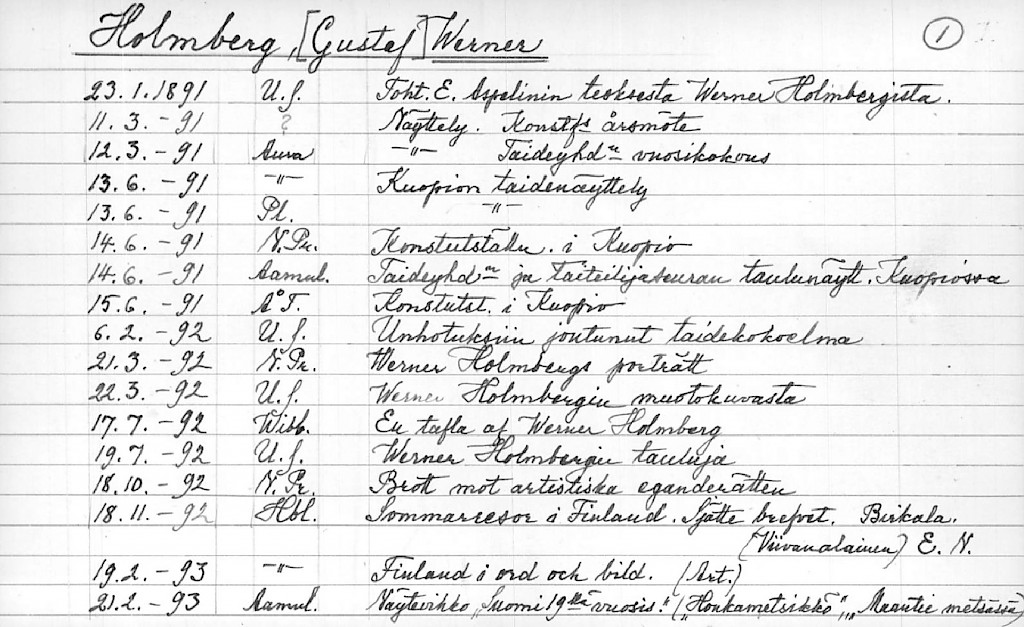 Holmberg, [Gustaf] Werner 1
23.1.1891 U.S. Toht. E. Aspelinin teoksesta Werner Holmbergista.
11.3.-91 ? Näyttely. Konstf:s årsmöte
12.3.-91 Aura -"- Taideyhd:n vuosikokous
13.6.-91 -"- Kuopion taidenäyttely
13.6.-91 Pl. -"-
14.6.-91 N.Pr. Konstutställn. i Kuopio
14.6.-91 Aamul. Taideyhd:n ja taiteilijaseuran taulunäytt. Kuopiossa
15.6.-91 Å T. Konstutst. i Kuopio
6.2.-92 U.S. Unhotuksiin joutunut taidekokoelma
21.3.-92 N.Pr. Werner Holmbergs porträtt
22.3.-92 U.S. Werner Holmbergin muotokuvasta
17.7.-92 Wibb. En tafla af Werner Holmberg
19.7.-92 U.S. Werner Holmbergin tauluja
18.10.-92 N.Pr. Brott mot artistiska eganderätten
18.11.-92 Hbl. Sommarresor i Finland. Sjätte brefvet. Birkala.
(Viivanalainen) E. N.
19.2.-93 -"- Finland i ord och bild. (Art.)
21.2.-93 Aamul. Näytevihko „Suomi 19llä vuosis." („Honkametsikkö", „Maantie metsässä)